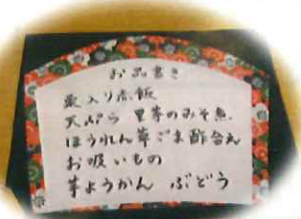 お品書き
栗入り赤飯
天ぷら 里芋のみそ煮
ほうれん草ごま酢合え
お吸いもの
芋ようかん ぶどう